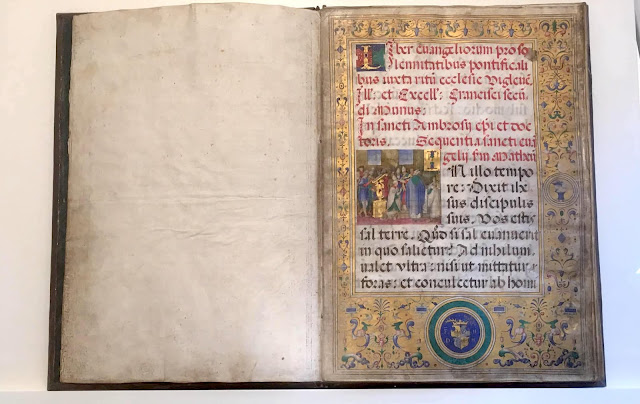 Liber euangeliorum pro so
lennitatibus pontificali
bus iuxta ritū ecclesie Uigleuē
Ill: et Excell: Francisci secū
di Munus:
In sancti Ambrosij epi et doc
toris. Sequentia sancti euā
gelij sm Matheū
In illo tempo
re: Dixit ihe
sus discipulis
suis. Uos estis
sal terre. Qūd si sal euanuerit
in quo salietur? Ad nihilum
ualet ultra: nisi ut mittatur
foras: et conculcetur ab homi